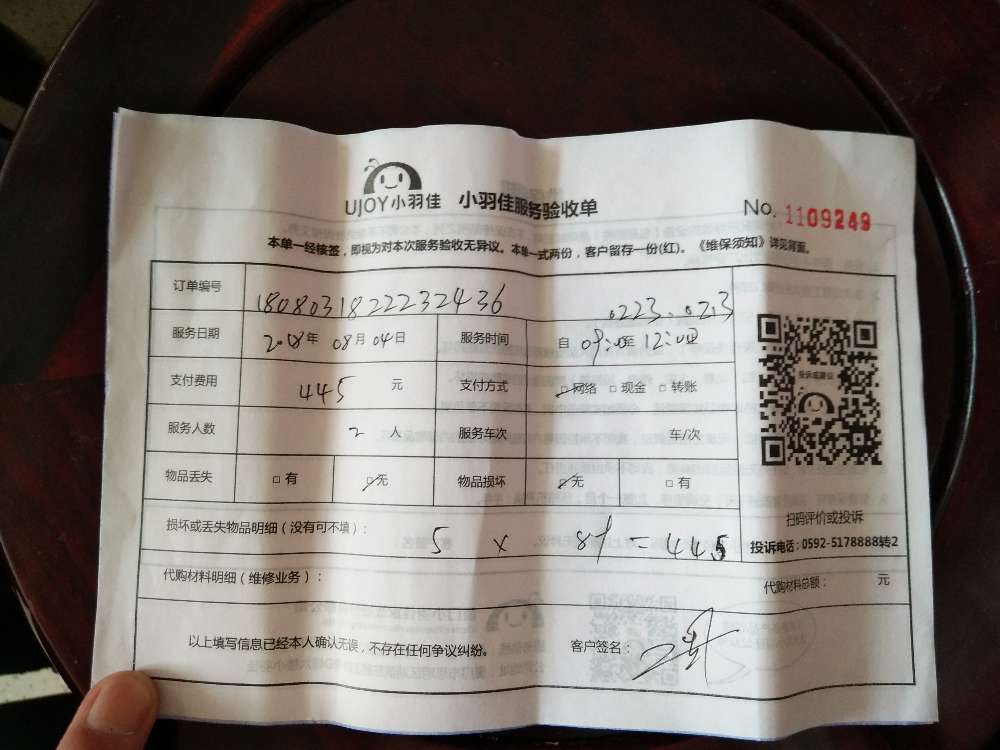 UJOY小羽佳 小羽佳服务验收单 No. 1109249
本单一经核签，即视为对本次服务验收无异议。本单一式两份，客户留存一份(红)。《维保须知》详见背面。
订单编号 18080318222232436 0223.0213
服务日期 2018年 08月 04日 服务时间 自 09:00至 12:00
支付费用 445 元 支付方式 ☑网络 □现金 □转账
服务人数 2 人 服务车次 车/次
物品丢失 □有 ☑无 物品损坏 ☑无 □有
投诉或建议
扫码评价或投诉
投诉电话：0592-5178888转2
损坏或丢失物品明细（没有可不填）： 5 x 89 = 445
代购材料明细（维修业务）： 代购材料总额： 元
以上填写信息已经本人确认无误，不存在任何争议纠纷。 客户签名：